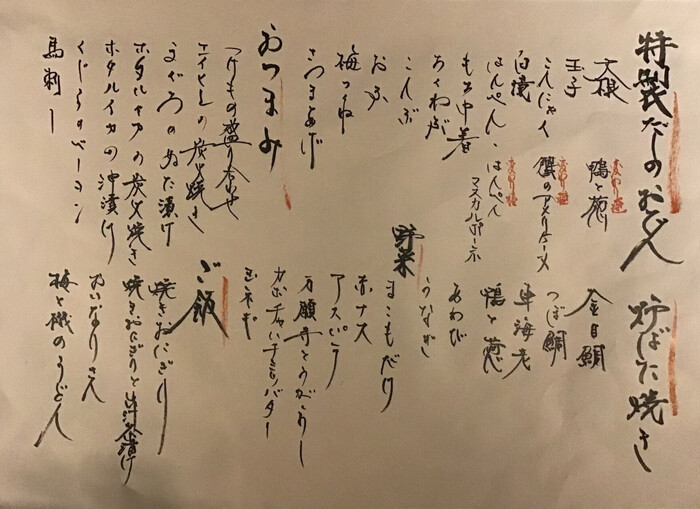 特製だしのおでん
大根
玉子
こんにゃく
白滝
はんぺん
もち中着
ちくわぶ
こんぶ
おふ
梅つくね
さつまあげ
変わり種
鴨と葱
変わり種
蟹のアメリケーヌ
変わり種
はんぺんマスカルポーネ
おつまみ
つけもの盛り合せ
エイヒレの炭火焼き
まぐろのぬた漬け
ホタルイカの炭火焼き
ホタルイカの沖漬け
くじらのベーコン
馬刺し
炉ばた焼き
金目鯛
つぼ鯛
車海老
鴨と葱
あわび
うなぎ
野菜
まこもだけ
赤ナス
アスパラ
万願寺とうがらし
カボチャハチミツバター
玉ネギ
ご飯
焼きおにぎり
焼きおにぎりと出汁茶漬け
おいなりさん
梅と磯のうどん